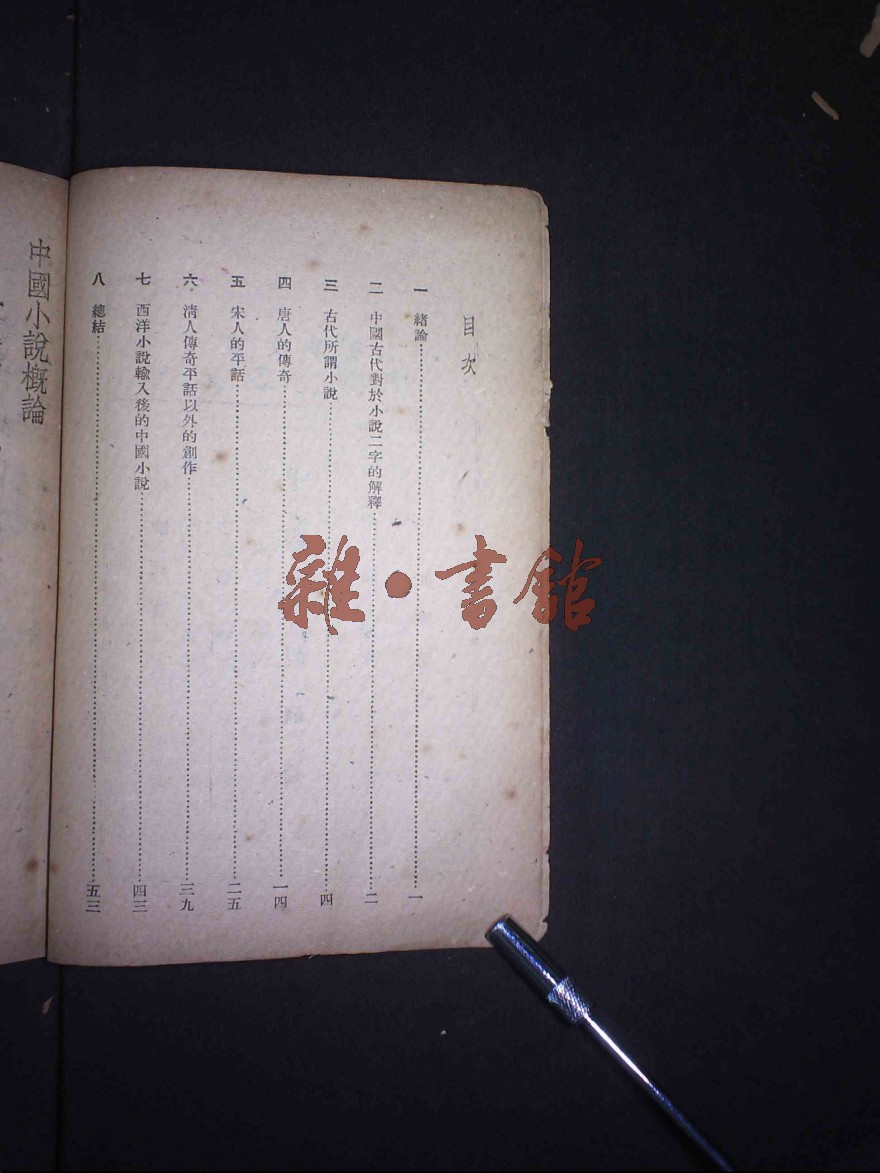 目次
一　緒論……一
二　中國古代對於小說二字的解釋……二
三　古代所謂小說……四
四　唐人的傳奇……一四
五　宋人的平話……二五
六　清人傳奇平話以外的創作……三九
七　西洋小說輸入後的中國小說……四三
八　總結……五三
中國小說概論
雜·書館